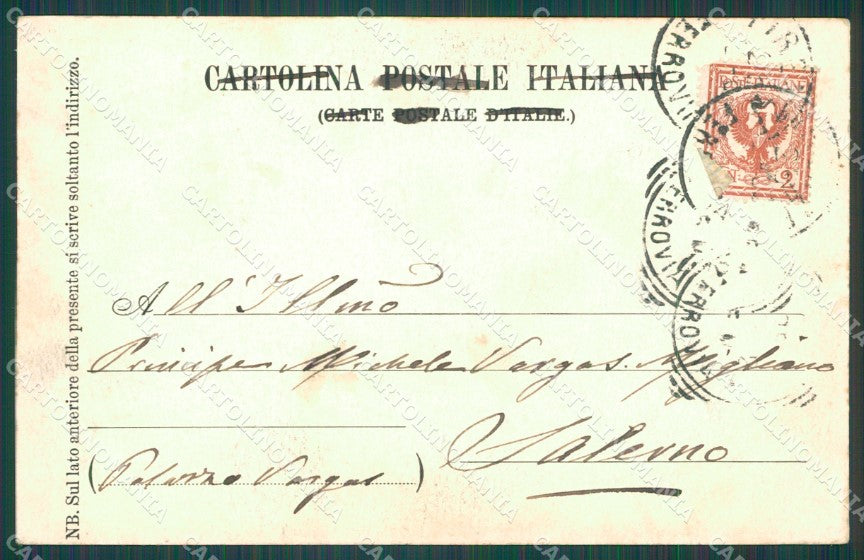 CARTOLINA POSTALE ITALIANA
(CARTE POSTALE D'ITALIE.)
NB. Sul lato anteriore della presente si scrive soltanto l'indirizzo.
FERROVIA
FERROVIA
FERROVIA
2
All'Illmo
Principe Michele Vargas Migliano
Salerno
(Palazzo Vargas)
CARTOLINOMANIA